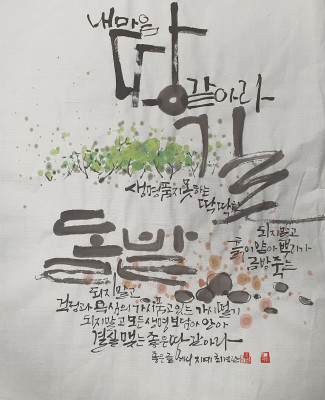 내마음
땅
같아라
생명품지못하는
딱딱한
길
되지말고
흙이얕아 뿌리가
금방죽는
돌밭
되지말고
걱정과 욕심의 가시품고있는 가시떨기
되지말고 모든생명 보듬어 안아
결실맺는 좋은땅같아라
좋은글